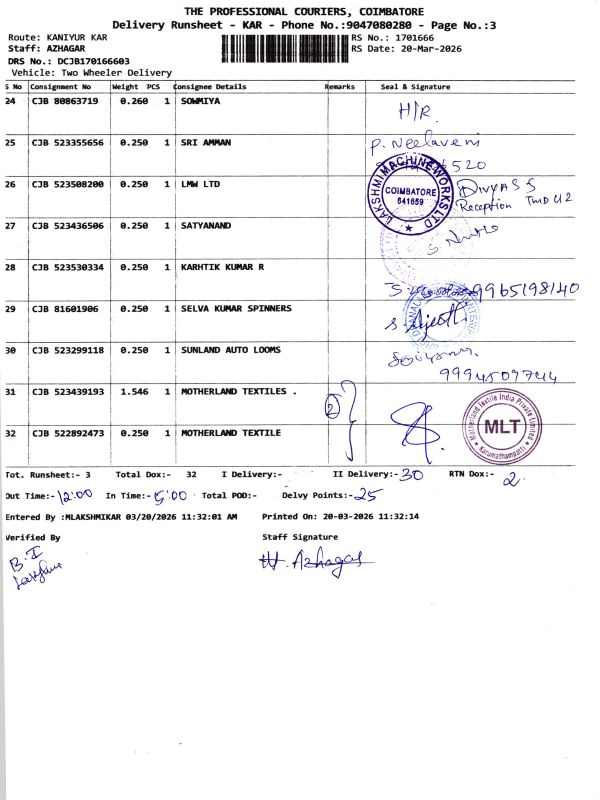 THE PROFESSIONAL COURIERS, COIMBATORE
Delivery Runsheet - KAR - Phone No.:9047080280 - Page No.:3
Route: KANIYUR KAR
RS No.: 1701666
Staff: AZHAGAR
RS Date: 20-Mar-2026
DRS No.: DCJB170166603
Vehicle: Two Wheeler Delivery
S No Consignment No Weight PCS Consignee Details Remarks Seal & Signature
24 CJB 80863719 0.260 1 SOWMIYA H/R.
25 CJB 523355656 0.250 1 SRI AMMAN P. Neelaveni
520
26 CJB 523508200 0.250 1 LMW LTD
LAKSHMI MACHINE WORKS LTD
COIMBATORE
641659
Divya S S
Reception TMD U2
27 CJB 523436506 0.250 1 SATYANAND
28 CJB 523530334 0.250 1 KARHTIK KUMAR R
9965198140
29 CJB 81601906 0.250 1 SELVA KUMAR SPINNERS
30 CJB 523299118 0.250 1 SUNLAND AUTO LOOMS
9994509744
31 CJB 523439193 1.546 1 MOTHERLAND TEXTILES .
2
Motherland Textile India Private Limited
MLT
Karumathampatti
32 CJB 522892473 0.250 1 MOTHERLAND TEXTILE
Tot. Runsheet:- 3 Total Dox:- 32 I Delivery:- II Delivery:- 30 RTN Dox:- 2
Out Time:- 12:00 In Time:- 5:00 Total POD:- Delvy Points:- 25
Entered By :MLAKSHMIKAR 03/20/2026 11:32:01 AM Printed On: 20-03-2026 11:32:14
Verified By Staff Signature
B.I
H. Azhagar